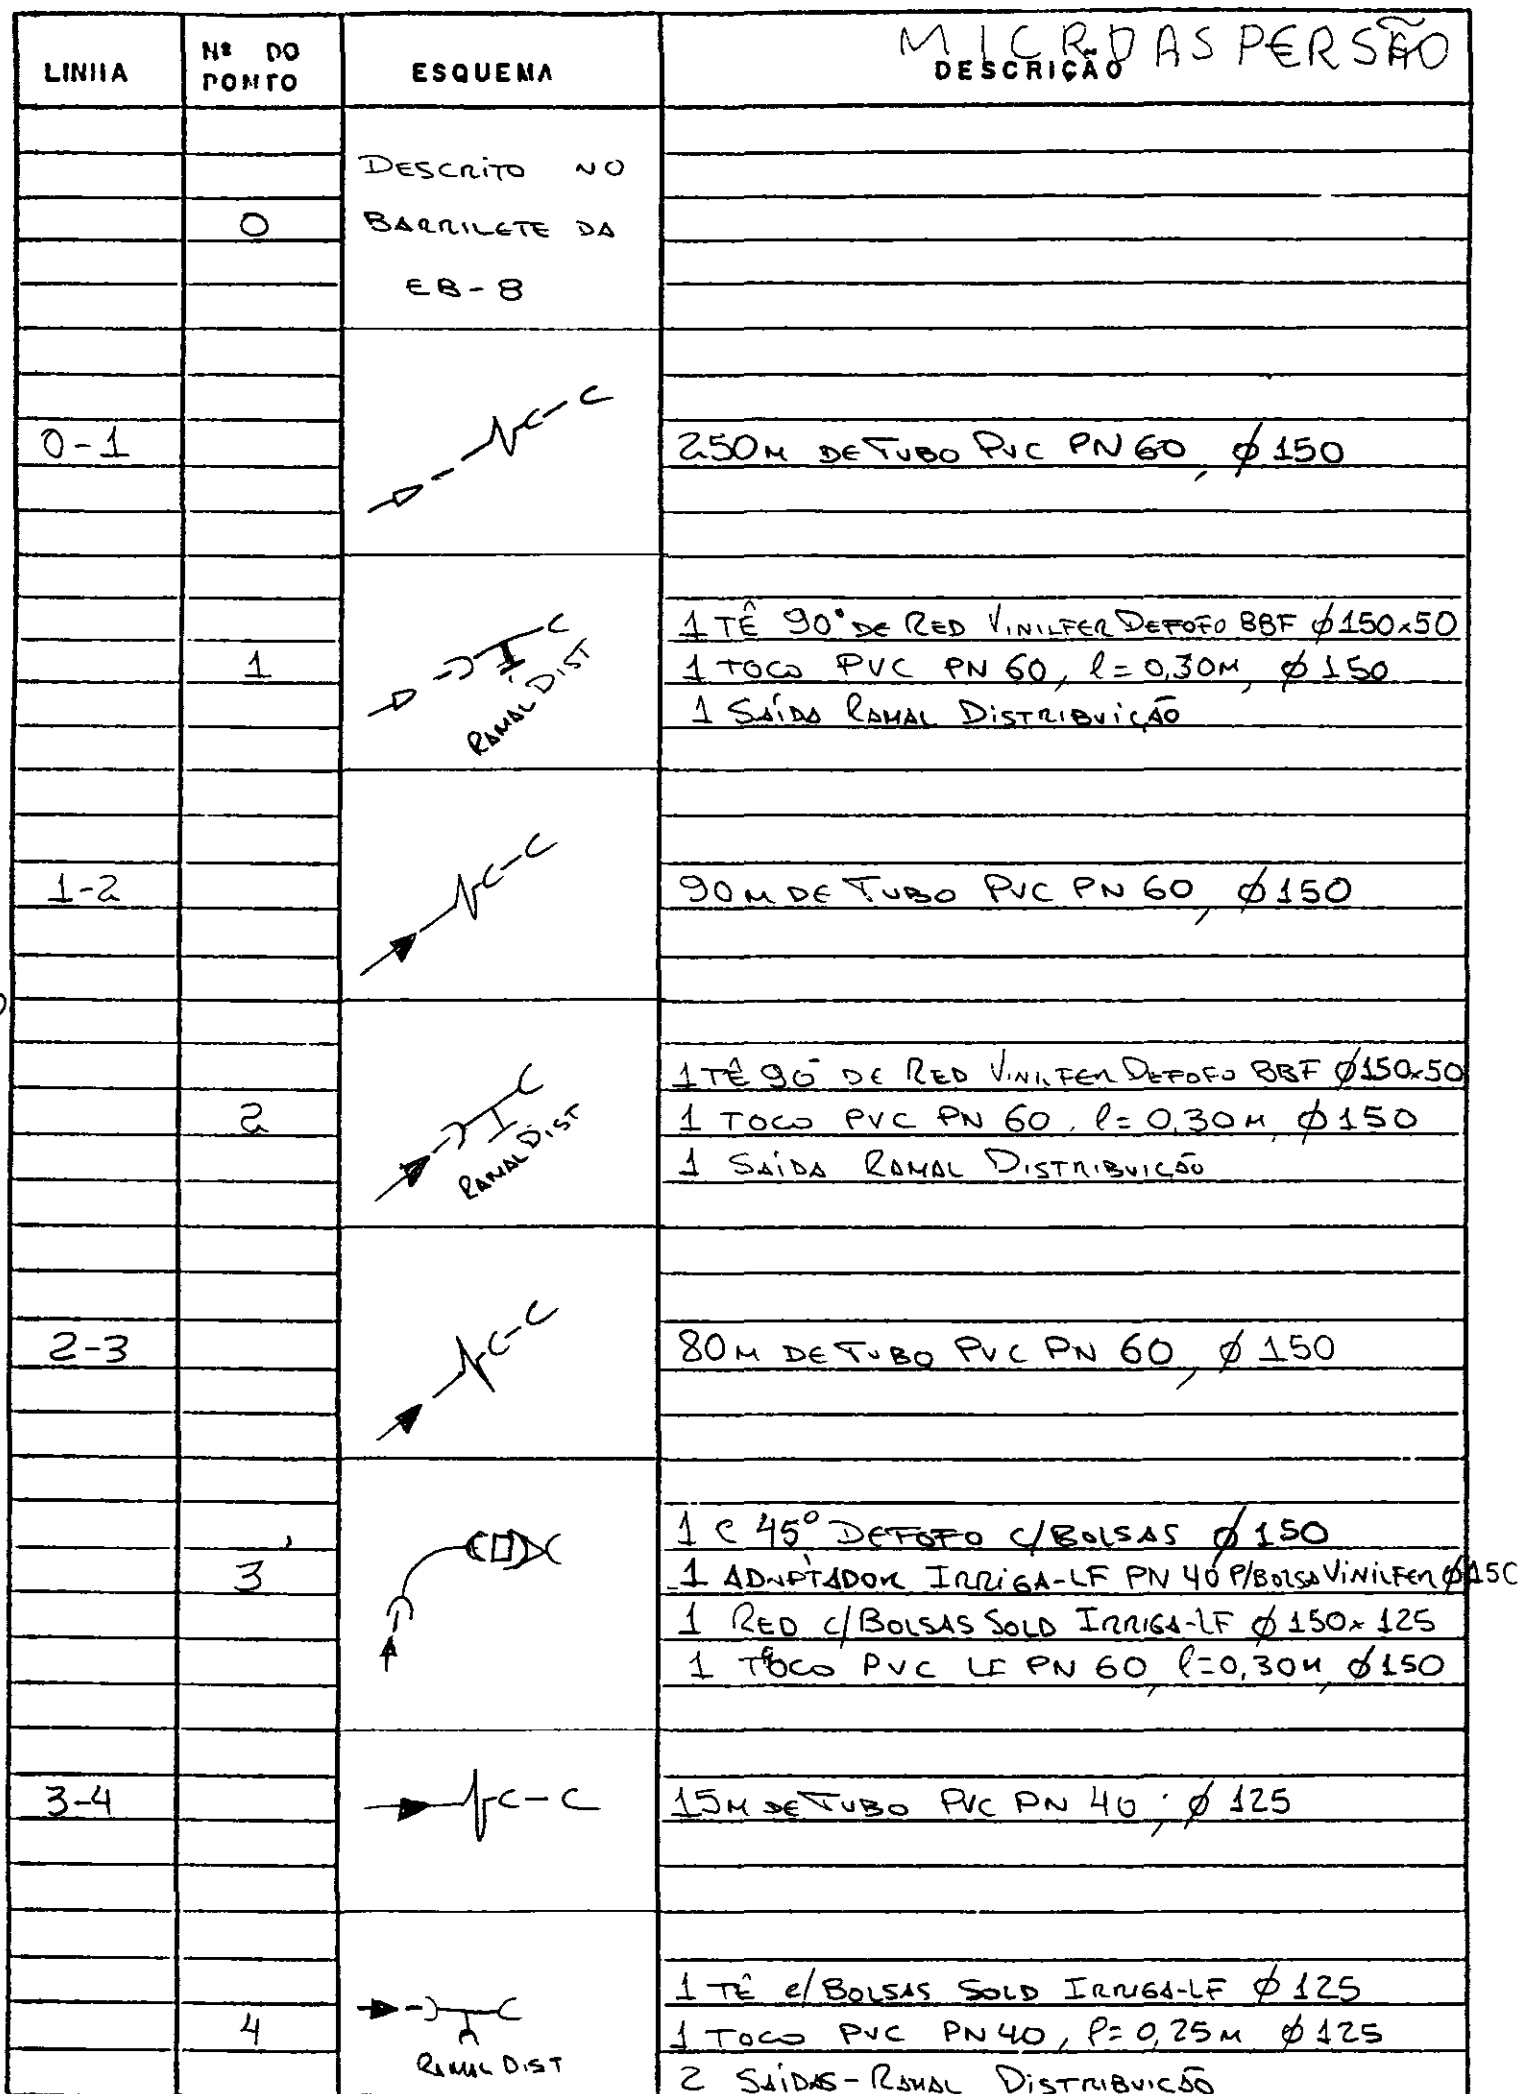 MICROASPERSÃO
LINHA
Nº DO PONTO
ESQUEMA
DESCRIÇÃO
0
DESCRITO NO
BARRILETE DA
EB-8
0-1
250M DE TUBO PVC PN 60, φ 150
1
RAMAL DIST
1 TÊ 90° DE RED VINILFER DEFOFO BBF φ150x50
1 TOCO PVC PN 60, l=0,30M, φ 150
1 SAÍDA RAMAL DISTRIBUIÇÃO
1-2
90M DE TUBO PVC PN 60, φ150
2
RAMAL DIST
1 TÊ 90° DE RED VINILFER DEFOFO BBF φ150x50
1 TOCO PVC PN 60, l=0,30M, φ150
1 SAÍDA RAMAL DISTRIBUIÇÃO
2-3
80M DE TUBO PVC PN 60, φ 150
3
1 C 45° DEFOFO C/BOLSAS φ 150
1 ADAPTADOR IRRIGA-LF PN 40 P/BOLSA VINILFER φ150
1 RED C/BOLSAS SOLD IRRIGA-LF φ 150x125
1 TOCO PVC LF PN 60, l=0,30M, φ150
3-4
15M DE TUBO PVC PN 40, φ 125
4
RAMAL DIST
1 TÊ C/BOLSAS SOLD IRRIGA-LF φ 125
1 TOCO PVC PN40, l=0,25M φ125
2 SAÍDAS-RAMAL DISTRIBUIÇÃO